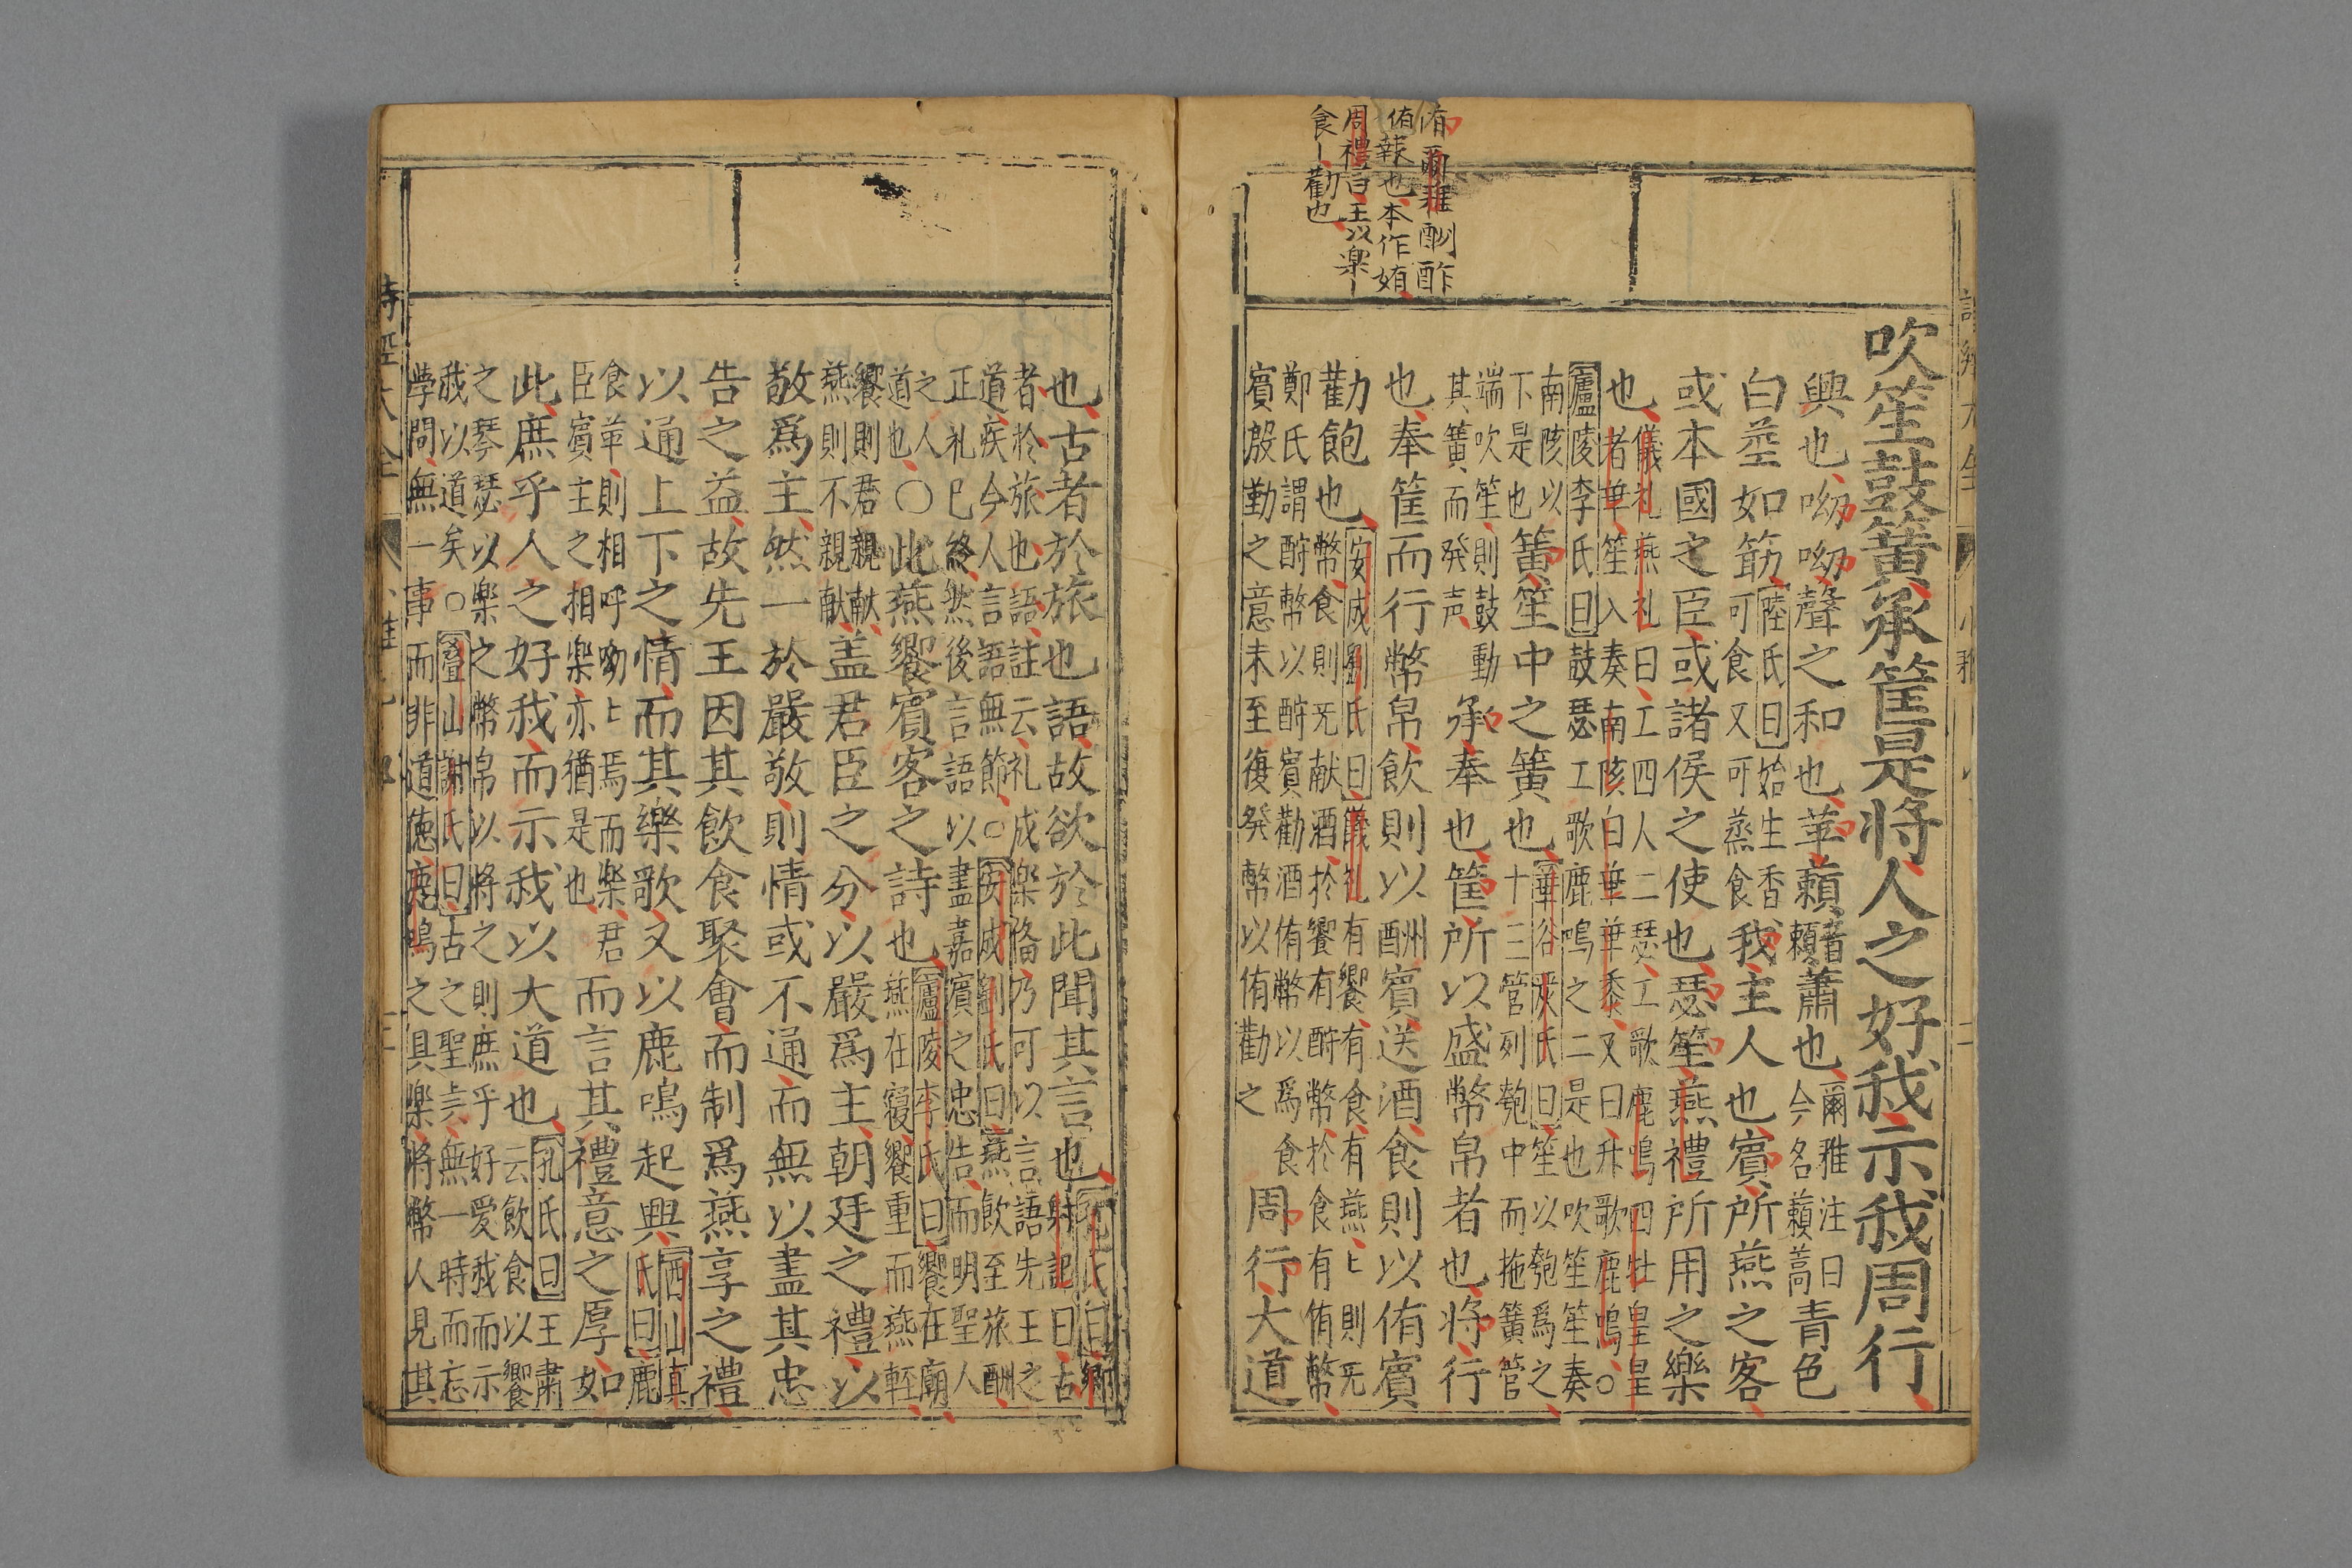 侑爾雅酬酢
侑報也本作姷
周禮曰王以樂ー
食ー勸也
吹笙鼓簧承筐是將人之好我示我周行
興也呦呦聲之和也苹藾音賴蕭也
爾雅注曰
今名藾蒿青色
白莖如筯
陸氏曰始生香
可食又可蒸食我主人也賓所燕之客
或本國之臣或諸侯之使也瑟笙燕禮所用之樂
也
儀礼燕礼曰工四人二瑟工歌鹿鳴四牡皇皇
者華笙入奏南陔白華華黍又曰升歌鹿鳴○
廬陵李氏曰鼓瑟工歌鹿鳴之二是也吹笙笙奏
南陔以
下是也簧笙中之簧也
華谷嚴氏曰笙以匏爲之
十三管列匏中而拖簧管
端吹笙則鼓動
其簧而發声承奉也筐所以盛幣帛者也將行
也奉筐而行幣帛飲則以酬賓送酒食則以侑賓
勸飽也
安成劉氏曰儀礼有饗有食有燕〻則旡
幣食則旡献酒於饗有酧幣於食有侑幣
鄭氏謂酧幣以酧賓勸酒侑幣以爲食
賓殷勤之意未至復發幣以侑勸之
周行大道
也古者於旅也語故欲於此聞其言也
孔氏曰鄉
射記曰古
者於旅也語註云礼成樂俻乃可以言語先王之
道疾今人言語無節○安成劉氏曰燕飲至旅酬
正礼已終然後言語以盡嘉賓之忠告而明聖人
之人
道也○此燕饗賓客之詩也
廬陵李氏曰饗在廟
燕在寢饗重而燕輕
饗則君親献
燕則不親献盖君臣之分以嚴爲主朝廷之禮以
敬爲主然一於嚴敬則情或不通而無以盡其忠
告之益故先王因其飲食聚會而制爲燕享之禮
以通上下之情而其樂歌又以鹿鳴起興
西山真
氏曰鹿
食苹則相呼呦〻焉而樂君
臣賓主之相樂亦猶是也而言其禮意之厚如
此庶乎人之好我而示我以大道也
孔氏曰王肅
云飲食以饗
之琴瑟以樂之幣帛以將之則庶乎好愛我而示
我以道矣○疊山謝氏曰古之聖无無一時而忘
學問無一事而非道德鹿鳴之具樂將幣人見其
詩經大全